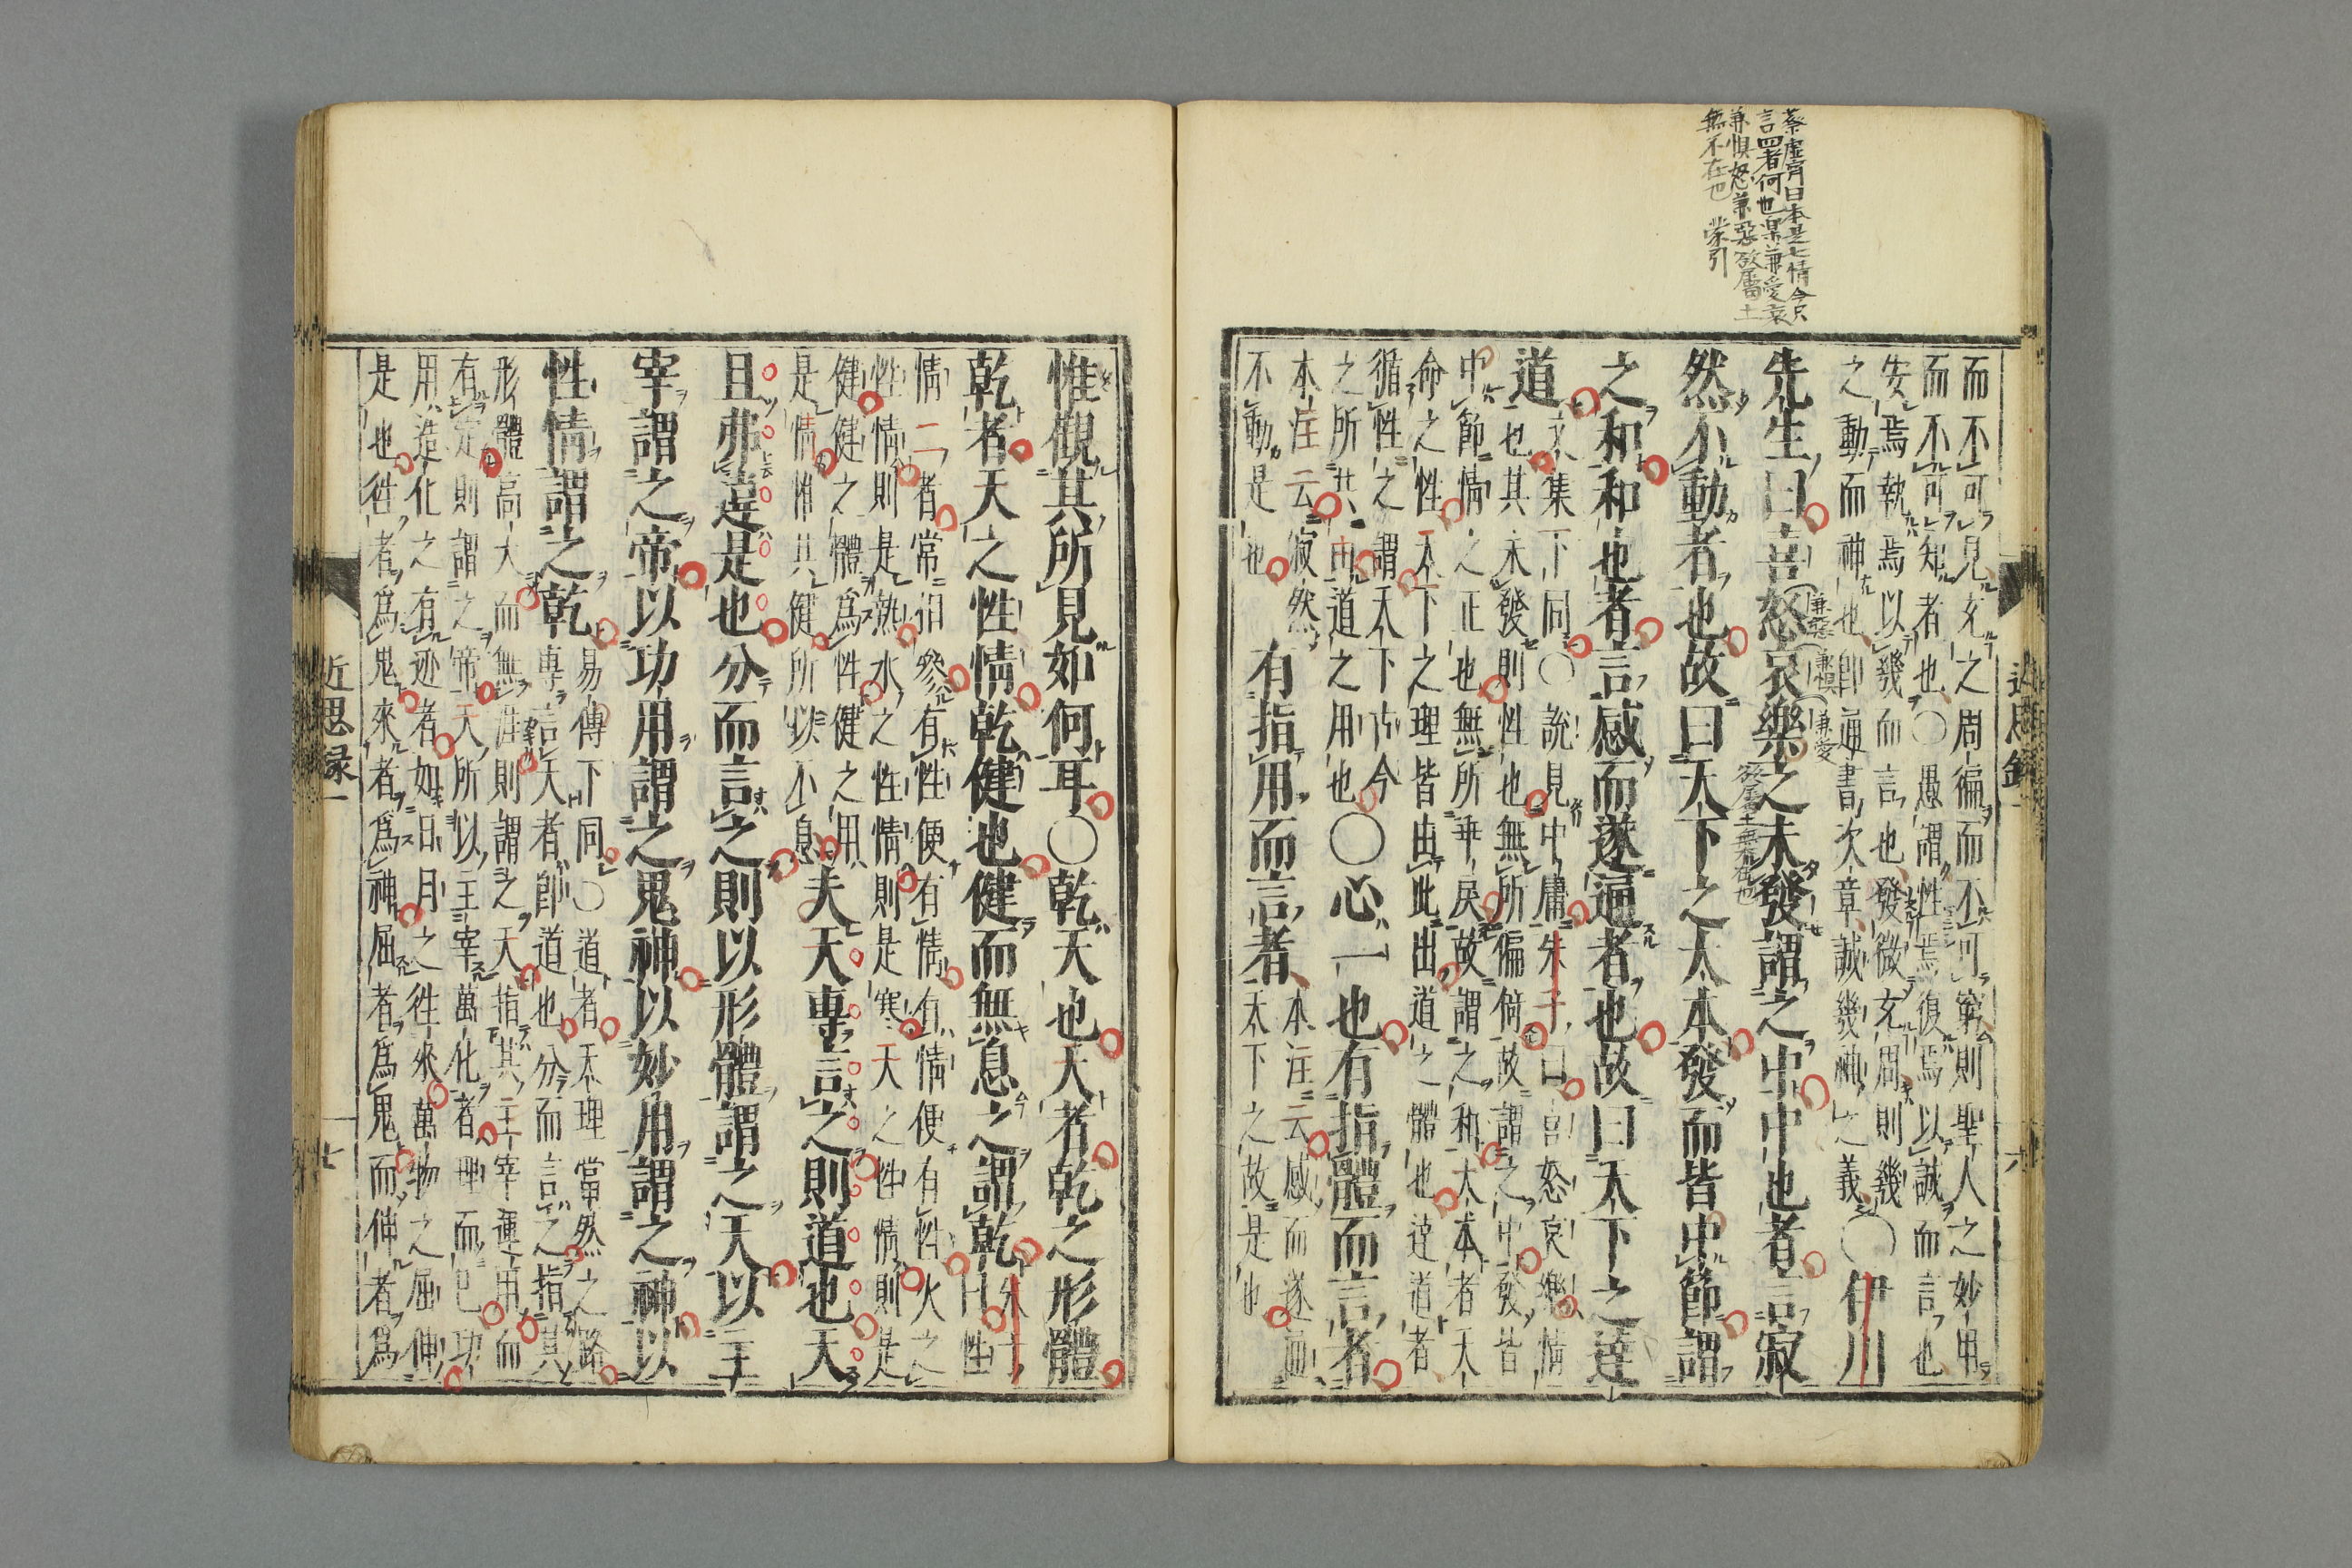 蔡虚斎曰本是七情今只
言四者何也楽兼愛哀
兼惧怒兼惡欲属土
無不在也 蒙引
而不可見充之周徧而不可窮則聖人之妙用
而不可知者也○愚謂性焉復焉以誠而言也
安焉執焉以幾而言也發微充周則幾
之動而神也即通書次章誠幾神之義○伊川
先生曰喜怒哀樂之未發謂之中中也者言寂
兼惡
兼惧
兼愛
欲属土無不在也
然不動者也故曰天下之大本發而皆中節謂
之和和也者言感而遂通者也故曰天下之達
道文集下同○說見中庸朱子曰喜怒哀樂情
也其未發則性也無所偏倚故謂之中發皆
中節情之正也無所乖戾故謂之和大本者天
命之性天下之理皆由此出道之體也達道者
循性之謂天下古今
之所共由道之用也○心一也有指體而言者
本注云寂然
不動是也
有指用而言者
本注云感而遂通
天下之故是也
近思錄一
六
惟觀其所見如何耳○乾天也天者乾之形體
乾者天之性情乾健也健而無息之謂乾朱子曰性
情二者常相參有性便有情有情便有性火之
性情則是熱水之性情則是寒天之性情則是
健健之體爲性健之用
是情惟其健所以不息
夫天專言之則道也天
且弗違是也分而言之則以形體謂之天以主
宰謂之帝以功用謂之鬼神以妙用謂之神以
性情謂之乾易傳下同○道者天理當然之路
專言天者即道也分而言之指其
形體高大而無涯則謂之天指其主宰運用而
有定則謂之帝天所以主宰萬化者理而已功
用造化之有迹者如日月之往來萬物之屈伸
是也往者爲鬼來者爲神屈者爲鬼而伸者爲
近思録一
七